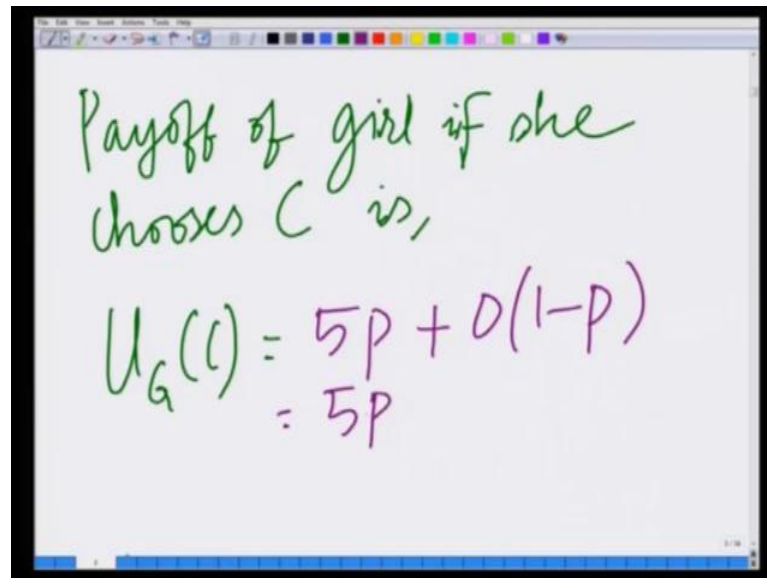 File Edit View Insert Actions Tools Help
Payoff of girl if she
chooses C is,
U_G(C) = 5p + 0(1-p)
= 5p